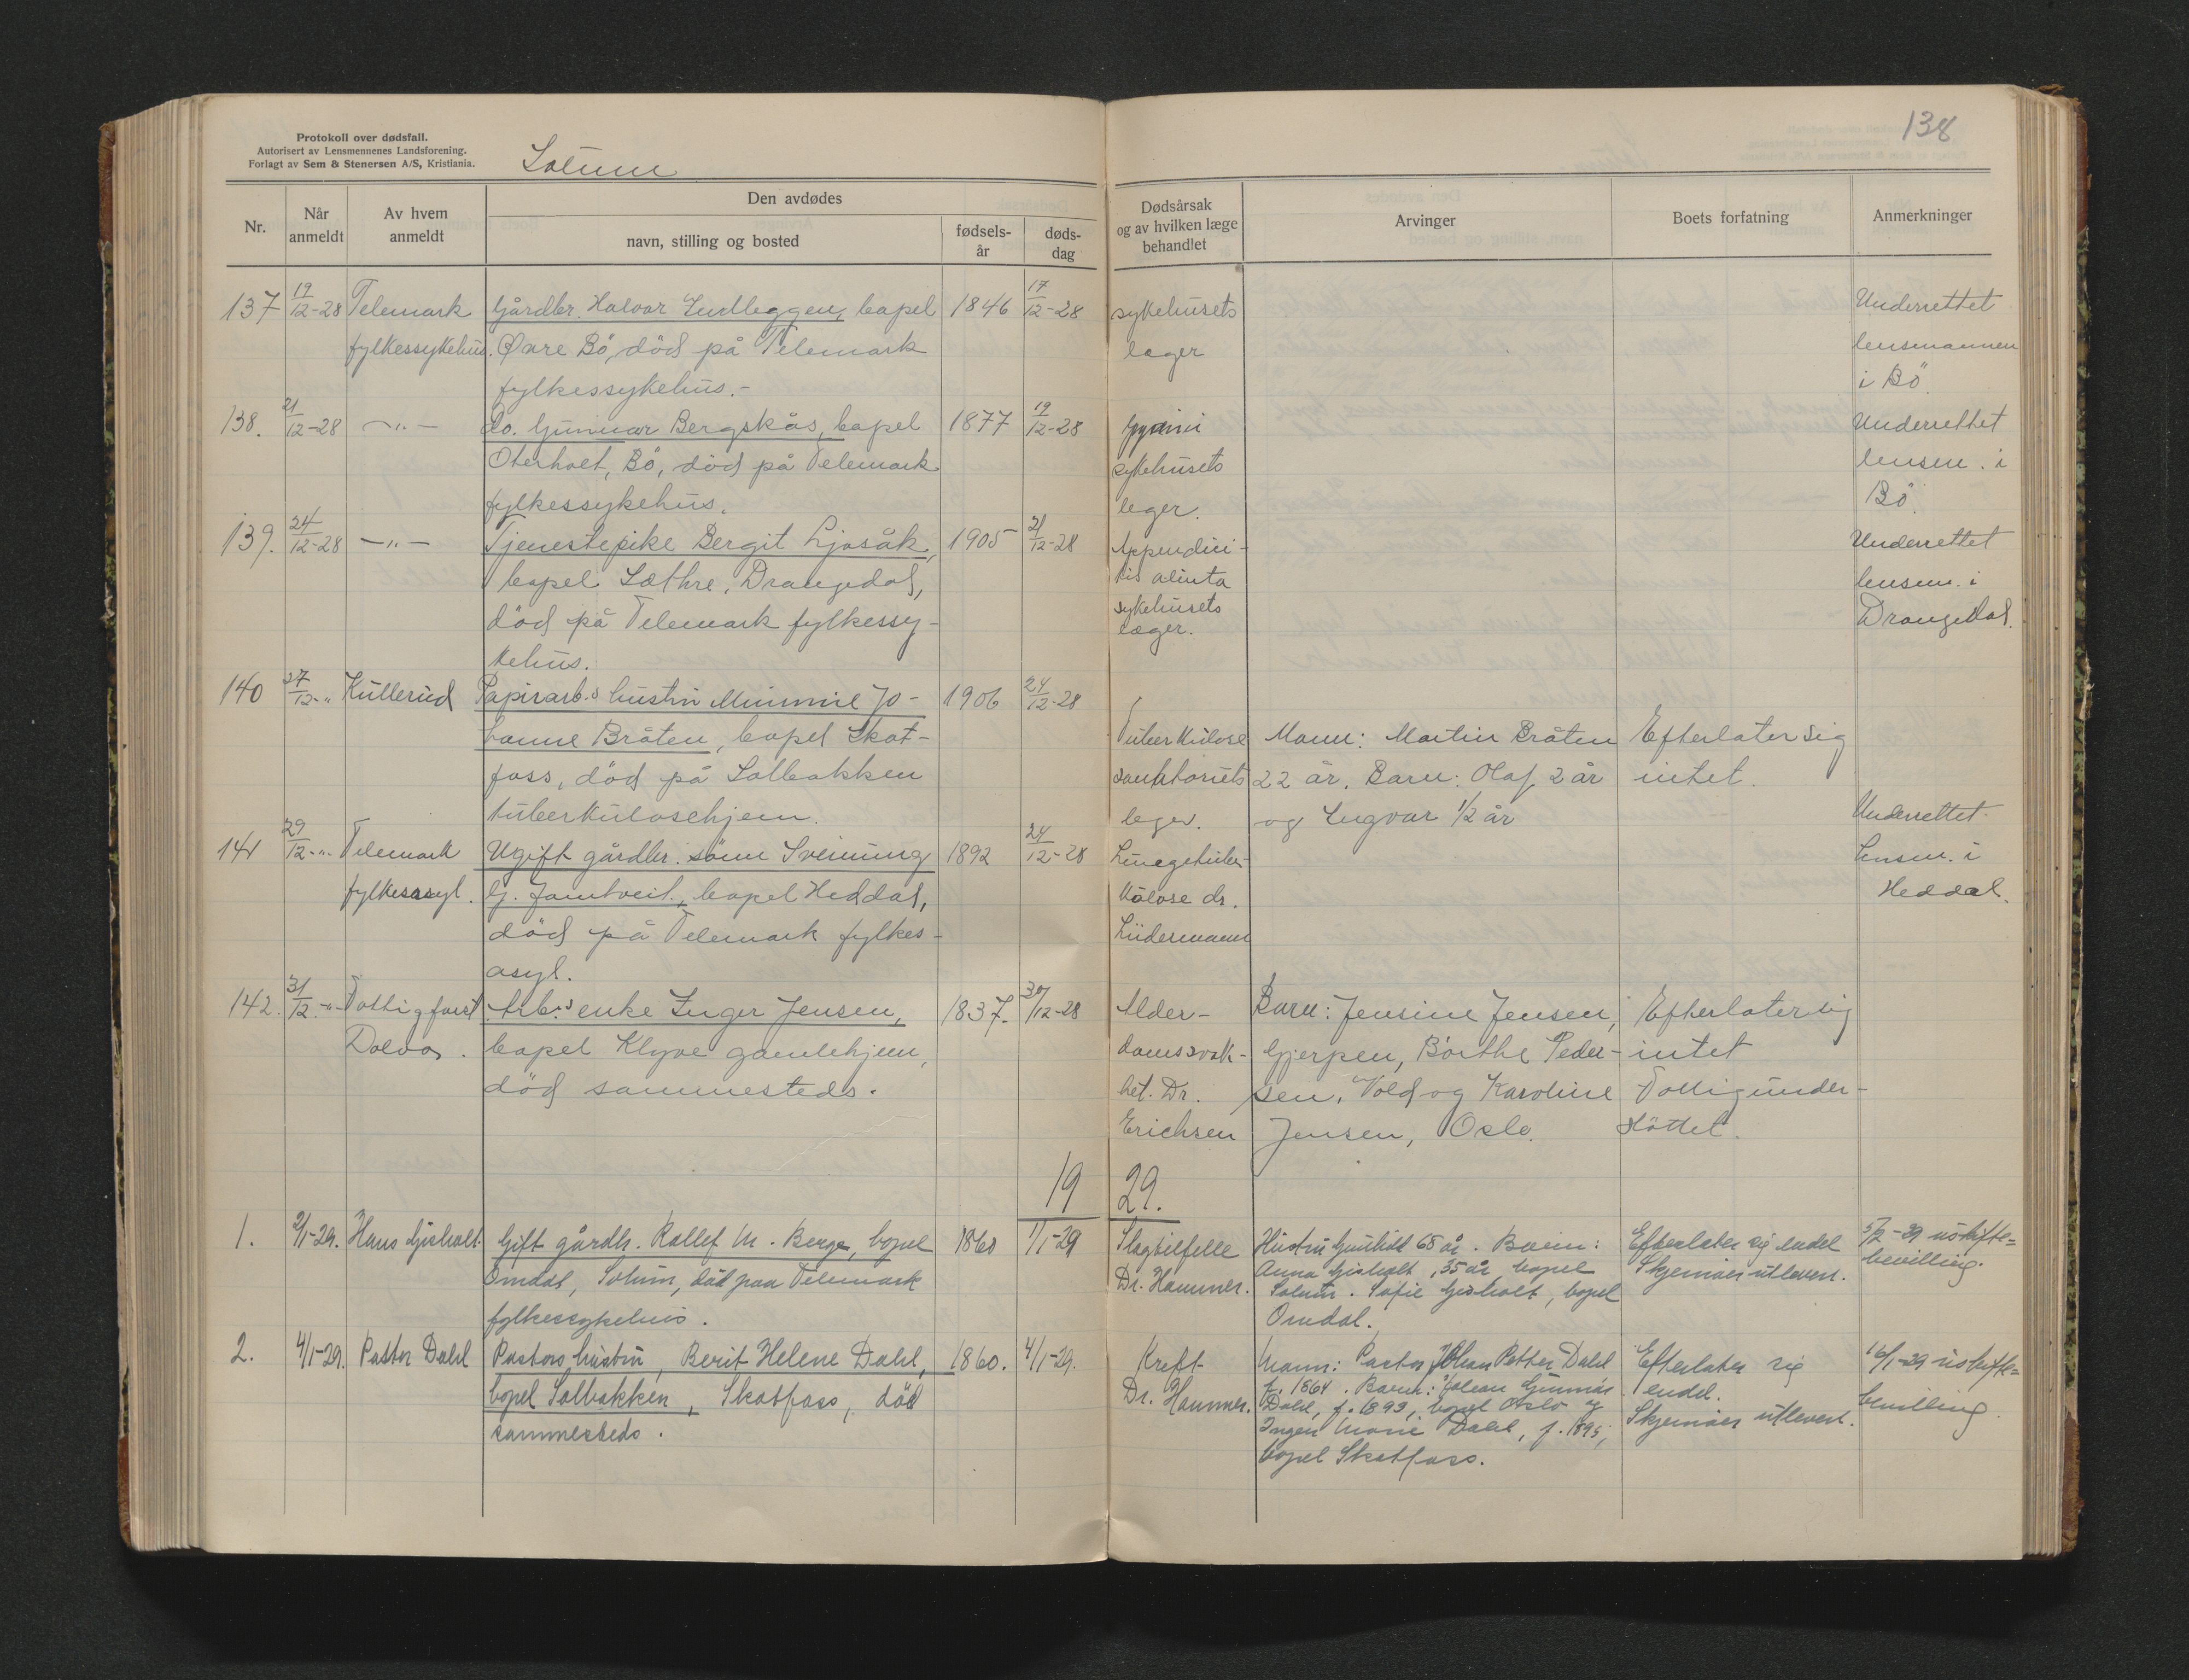 Protokoll over dødsfall.
Autorisert av Lensmennenes Landsforening.
Forlagt av Sem & Stenersen A/S, Kristiania.
Solum
138
Nr.
Når
anmeldt
Av hvem
anmeldt
Den avdødes
navn, stilling og bosted
fødsels-
år
døds-
dag
Dødsårsak
og av hvilken læge
behandlet
Arvinger
Boets forfatning
Anmerkninger
137 19/12-28 Telemark Gårdbr. Halvor bopel 1846 17/12-28 sykehusets Underrettet
fylkessykehus. Øvre Bö, död på Telemark læger lensmannen
fylkessykehus.- i Bö
138. 21/12-28 -"- do. Gunnar Bergskås, bopel 1877 19/12-28 Underrettet
Oterholt, Bö, död på Telemark sykehusets lensm. i
fylkessykehus. leger. Bö
139. 24/12-28 -"- Tjenestepike Bergit Ljosåk, 1905 21/12-28 Appendici- Underrettet
bopel Sæthre, Drangedal, tis sykehusets lensm. i
död på Telemark fylkessy- læger. Drangedal.
kehus.
140 27/12-" Kullerud Papirarb.s hustru Minnie Jo- 1906 24/12-28
hanne Bråten, bopel Skot- Tuberkulose Mann: Martin Bråten Efterlater sig
foss, död på Solbakken 22 år. Barn: Olaf 2 år intet.
tuberkulosehjem. leger. og Ingvar 1/2 år
141 29/12-" Telemark Ugift gårdbr. sönn Sveinung 1892 24/12-28 Lungetuber- Underrettet
fylkesasyl. G. Jamtveit, bopel Heddal, kulose dr. lensm. i
död på Telemark fylkes- Lüdermann Heddal.
asyl.
142. 31/12-" Fattigforst. Arb.s enke Inger Jensen, 1837. 30/12-28 Alder- Barn: Jensine Jensen, Efterlater sig
Dolva. bopel Klyve gamlehjem, domssvak- Gjerpen, Börthe Peder- intet
död sammesteds. het. Dr. sen, Vold og Karoline Fattigunder-
Erichsen Jensen, Oslo. stöttet.
19 29.
1. 2/1-29. Hans Gisholt. Gift gårdbr. Rollef M. Berge, bopel 1860 1/1-29 Slagtilfelle Hustru Gunhild 68 år. Barn: Efterlater sig endel 5/2-29 uskifte=
Omdal, Solum, död paa Telemark Dr. Hammer. Anna Gisholt, 35 år bopel Skjemaer utlevert. bevilling.
fylkessykehus. Solum. Sofie Gisholt, bopel
Omdal.
2. 4/1-29. Pastor Dahl Pastors hustru, Berit Helene Dahl, 1860. 4/1-29. Kreft Mann: Pastor Johan Petter Dahl Efterlater sig 16/1-29 uskifte=
bopel Solbakken, Skotfoss, död Dr. Hammer. f. 1864. Barn: Johan Gunnar endel. bevilling.
sammesteds. Dahl, f. 1893, bopel Oslo og Skjemaer utlevert.
Inger Marie Dahl, f. 1895,
bopel Skotfoss.